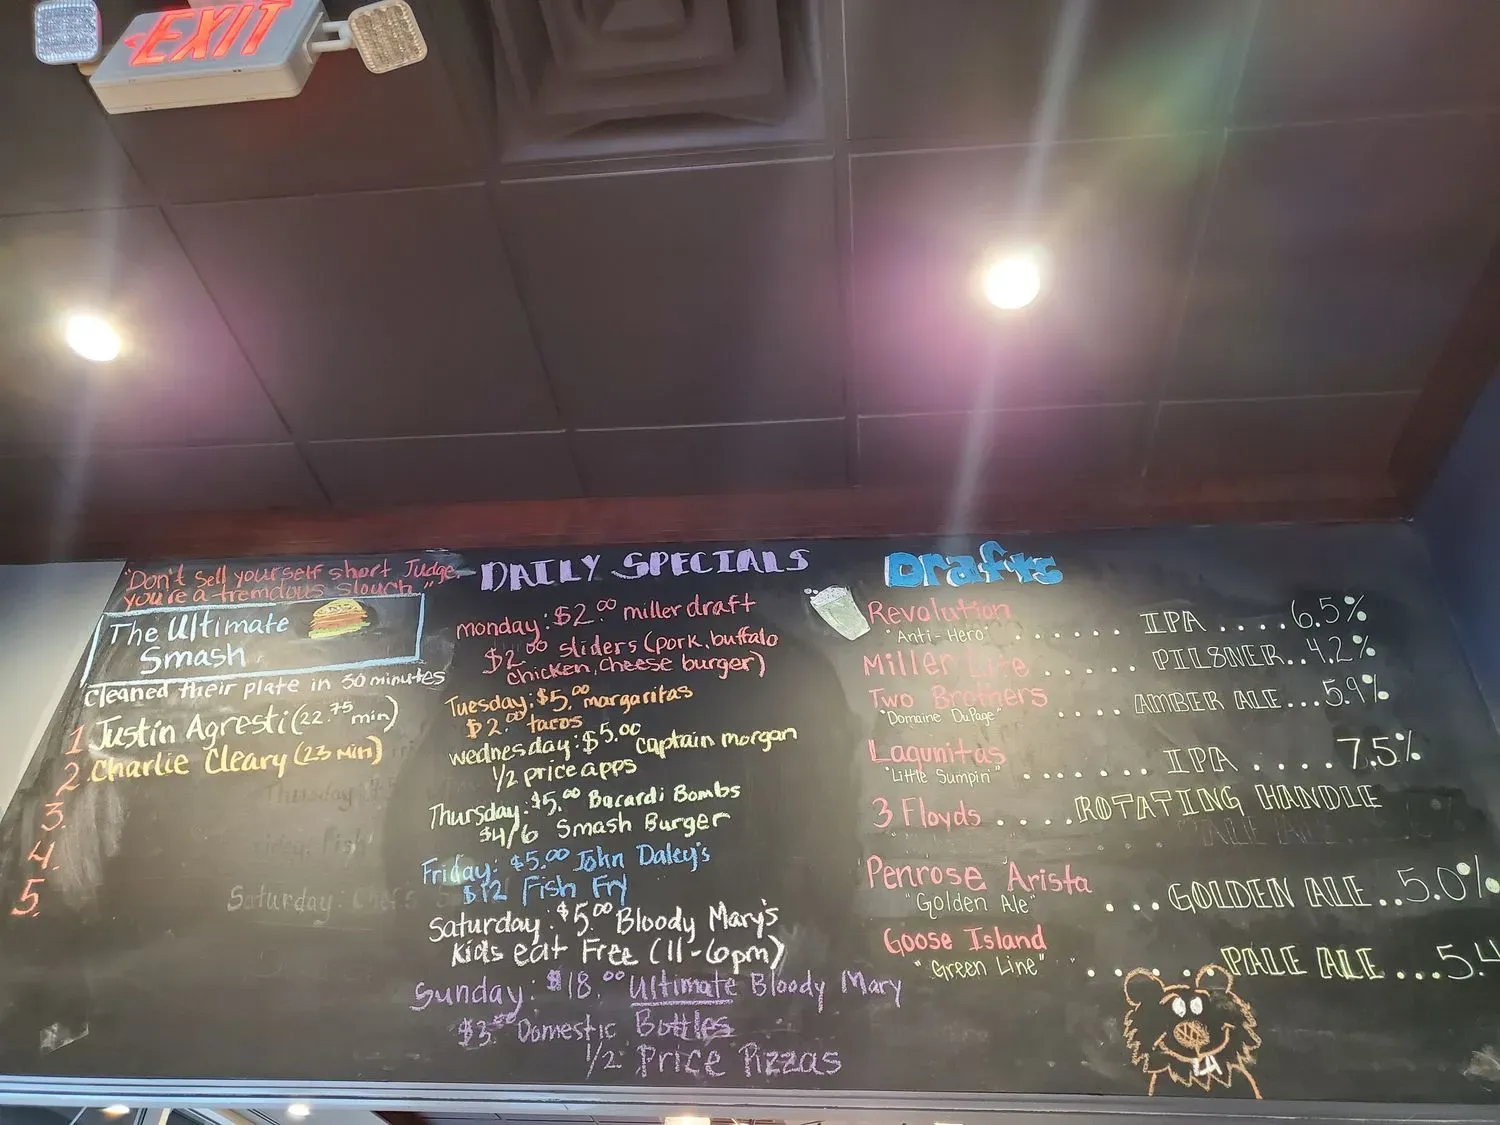 EXIT
"Don't sell yourself short Judge,
you're a tremdous slouch"
The Ultimate
Smash
cleaned their plate in 30 minutes
1 Justin Agresti (22.75 min)
2. Charlie Cleary (23 Min)
3.
4.
5.
Thursday
Saturday: Chef's
DAILY SPECIALS
Monday: $2.00 miller draft
$2.00 sliders (pork, buffalo
chicken, cheese burger)
Tuesday: $5.00 margaritas
$2.00 tacos
wednesday: $5.00 captain morgan
1/2 price apps
Thursday: $5.00 Bacardi Bombs
$4/6 Smash Burger
Friday: $5.00 John Daley's
$12 Fish Fry
Saturday: $5.00 Bloody Mary's
Kids eat Free (11-6pm)
Sunday: $18.00 Ultimate Bloody Mary
$3.00 Domestic Bottles
1/2 Price Pizzas
Drafts
Revolution
"Anti-Hero" ....... IPA .... 6.5%
Miller Lite ...... PILSNER.. 4.2%
Two Brothers
"Domaine DuPage" .... AMBER ALE... 5.9%
Lagunitas
"Little Sumpin" ....... IPA .... 7.5%
3 Floyds .... ROTATING HANDLE
Penrose Arista
"Golden Ale" ... GOLDEN ALE.. 5.0%
Goose Island
"Green Line" ..... PALE ALE ... 5.4